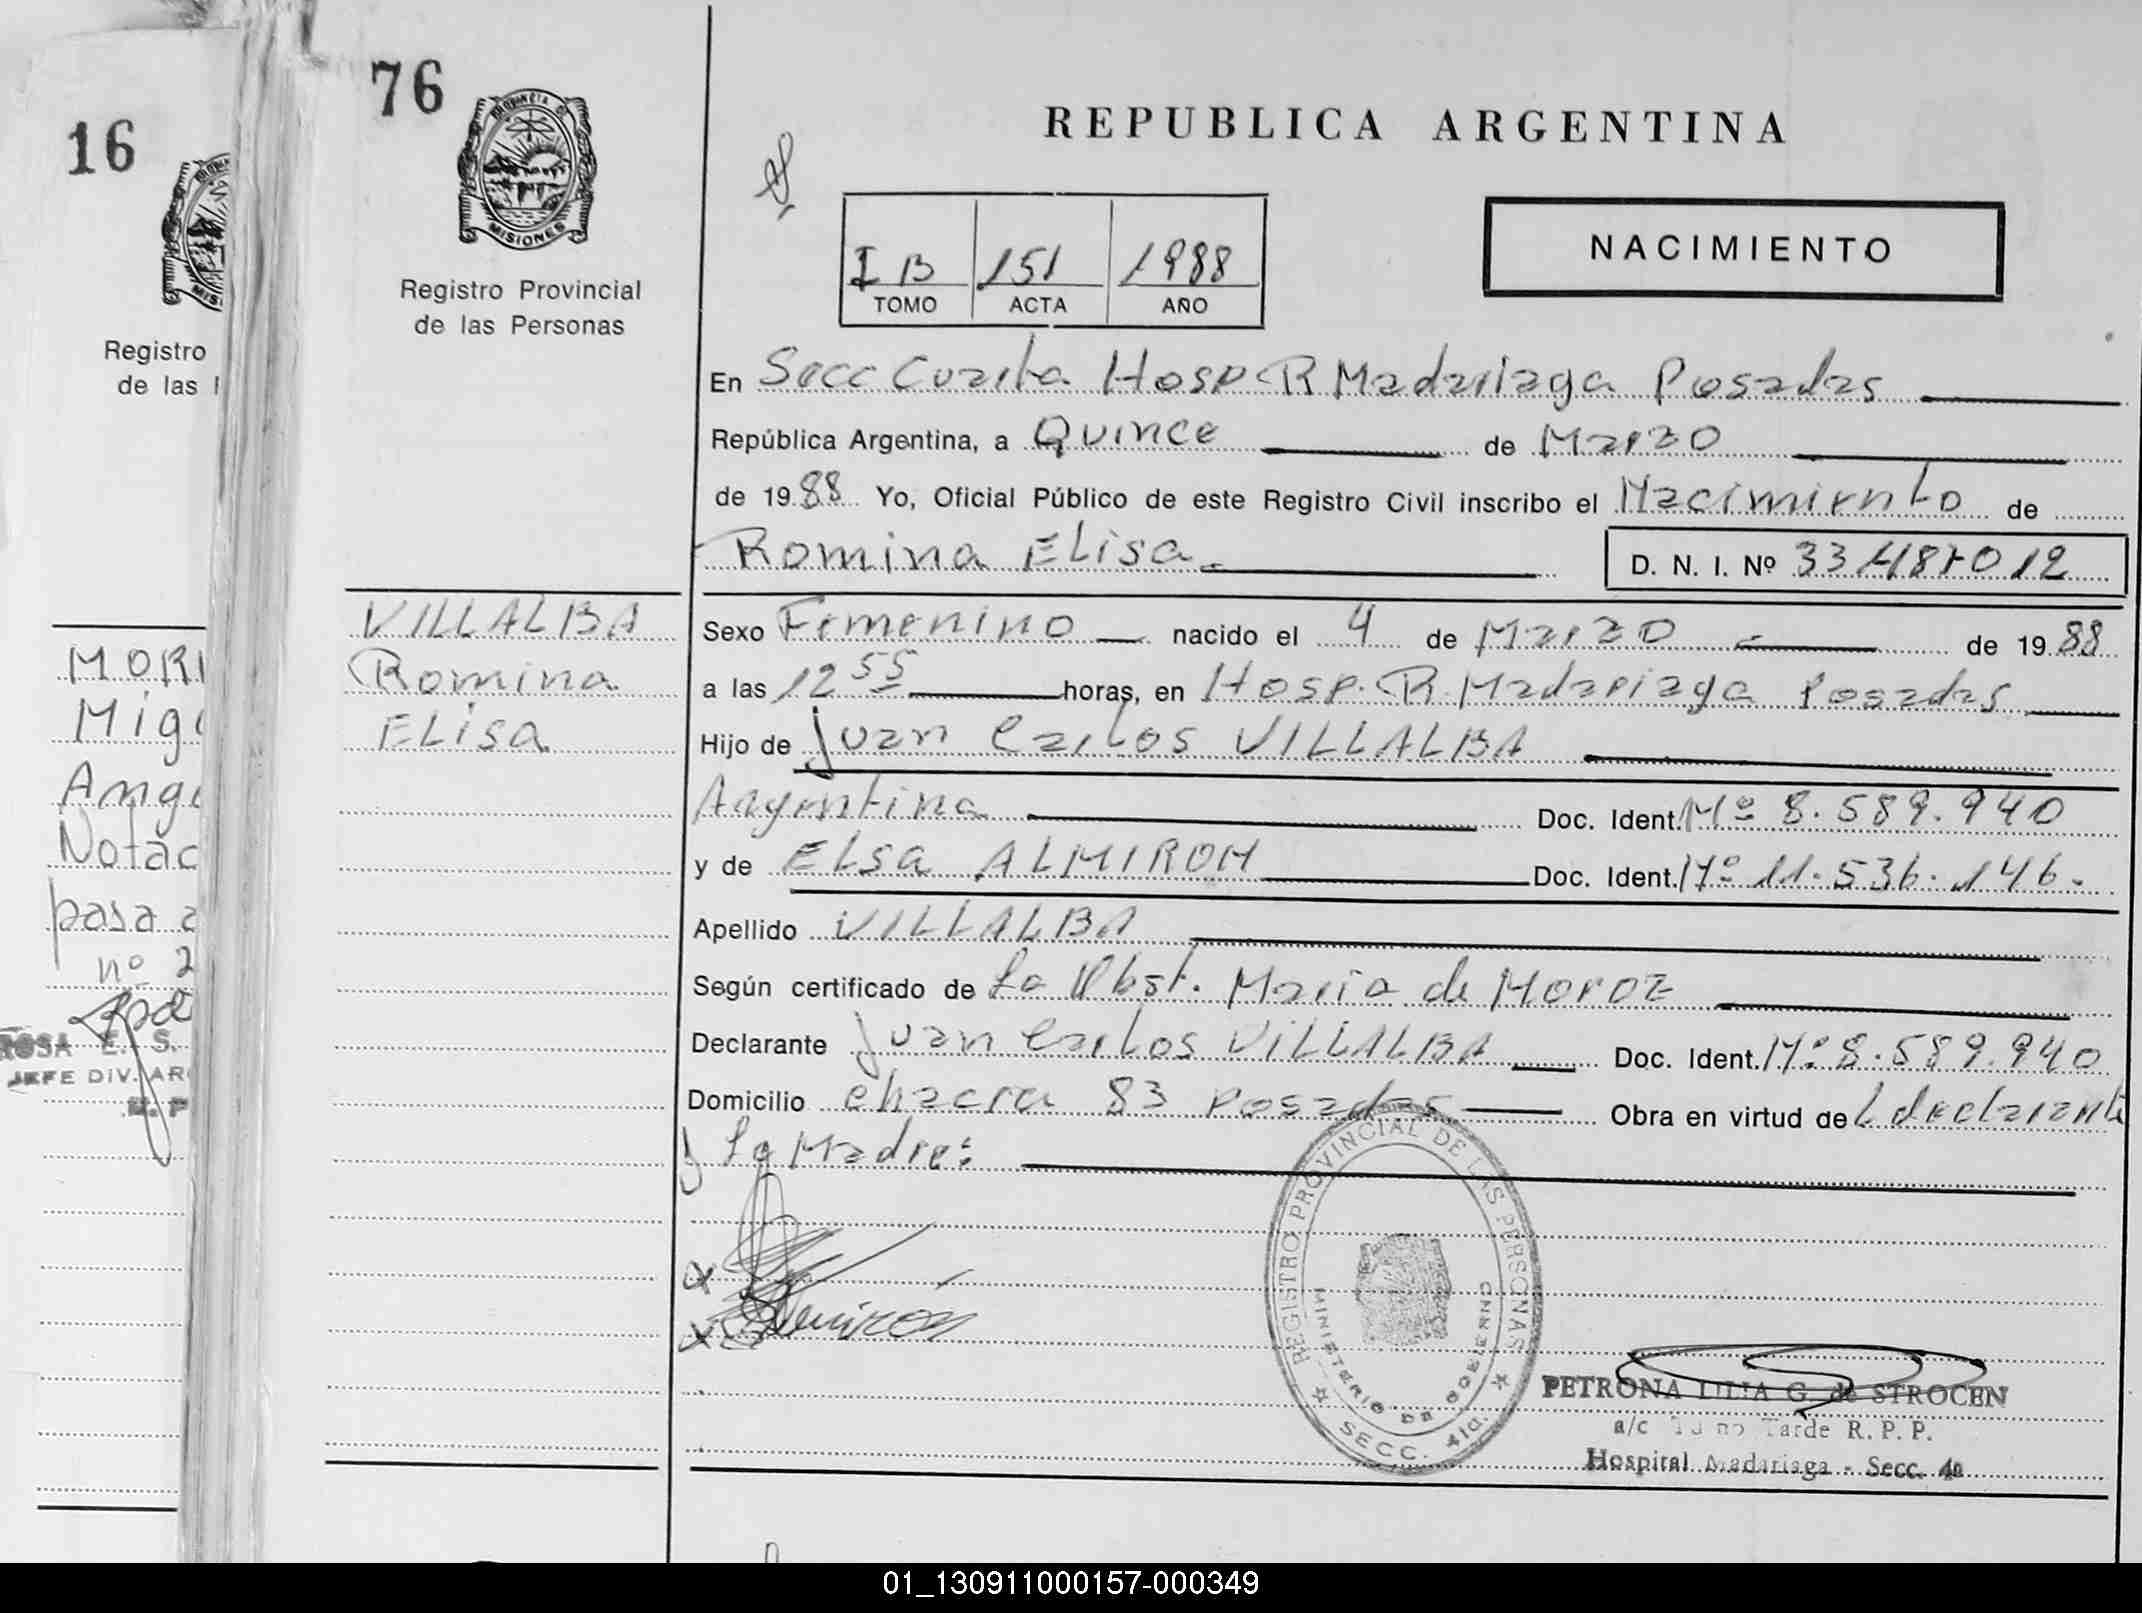 16
Registro
de las
MORI
Mig
Ang
Notac
pasa a
nº 2
ROSA E. S.
JEFE DIV. AR
76
PROVINCIA DE
MISIONES
Registro Provincial
de las Personas
VILLALBA
Romina
ELisa
REPUBLICA ARGENTINA
I B 151 1988
TOMO ACTA AÑO
NACIMIENTO
En Secc Cuarta Hosp R Madariaga Posadas
República Argentina, a Quince de Marzo
de 1988 Yo, Oficial Público de este Registro Civil inscribo el Nacimiento de
Romina ELisa
D. N. I. Nº 33487012
Sexo Femenino nacido el 4 de Marzo de 1988
a las 12 55 horas, en Hosp. R. Madariaga Posadas
Hijo de Juan Carlos VILLALBA
Argentina Doc. Ident. Nº 8.589.940
y de ELsa ALMIRON Doc. Ident. Nº 11.536.146.
Apellido VILLALBA
Según certificado de La Obst. Maria de Moroz
Declarante Juan Carlos VILLALBA Doc. Ident. Nº 8.589.940
Domicilio chacra 83 Posadas Obra en virtud de L declarante
y La Madre:
REGISTRO PROVINCIAL DE LAS PERSONAS
MINISTERIO DE GOBIERNO
SECC. 4ta.
PETRONA LILIA G. de STROCEN
a/c Turno Tarde R. P. P.
Hospital Madariaga - Secc. 4a
01_130911000157-000349